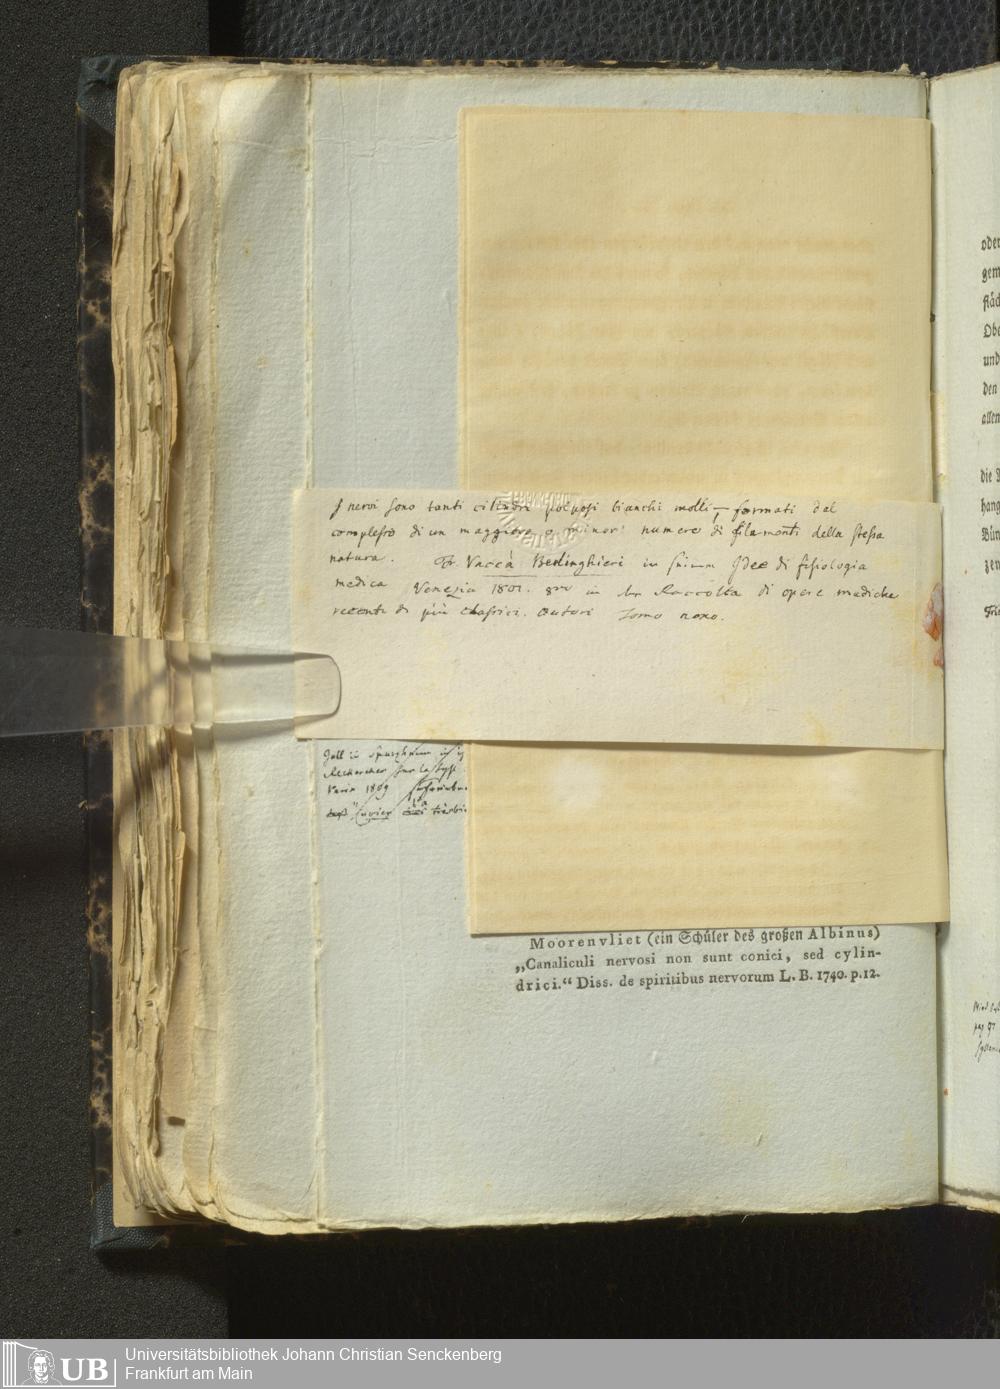 I nervi sono tanti cilindri polposi bianchi molli, formati dal
complesso di un maggiore o minor numero di filamenti della stessa
natura. Fr. Vaccà Berlinghieri in seinem Idee di fisiologia
medica Venezia 1801. 8vo in der Raccolta di opere mediche
recenti di più classici. Autori Tomo nono.
Gall u Spurzheim in
Recherches sur le syst
Paris 1809
Cuvier
Moorenvliet (ein Schüler des großen Albinus)
„Canaliculi nervosi non sunt conici, sed cylin-
drici.“ Diss. de spiritibus nervorum L. B. 1740. p. 12.
oder
gem
fläch
Obe
und
den
allen
die
hang
Bün
zen
pag 97
UB
Universitätsbibliothek Johann Christian Senckenberg
Frankfurt am Main